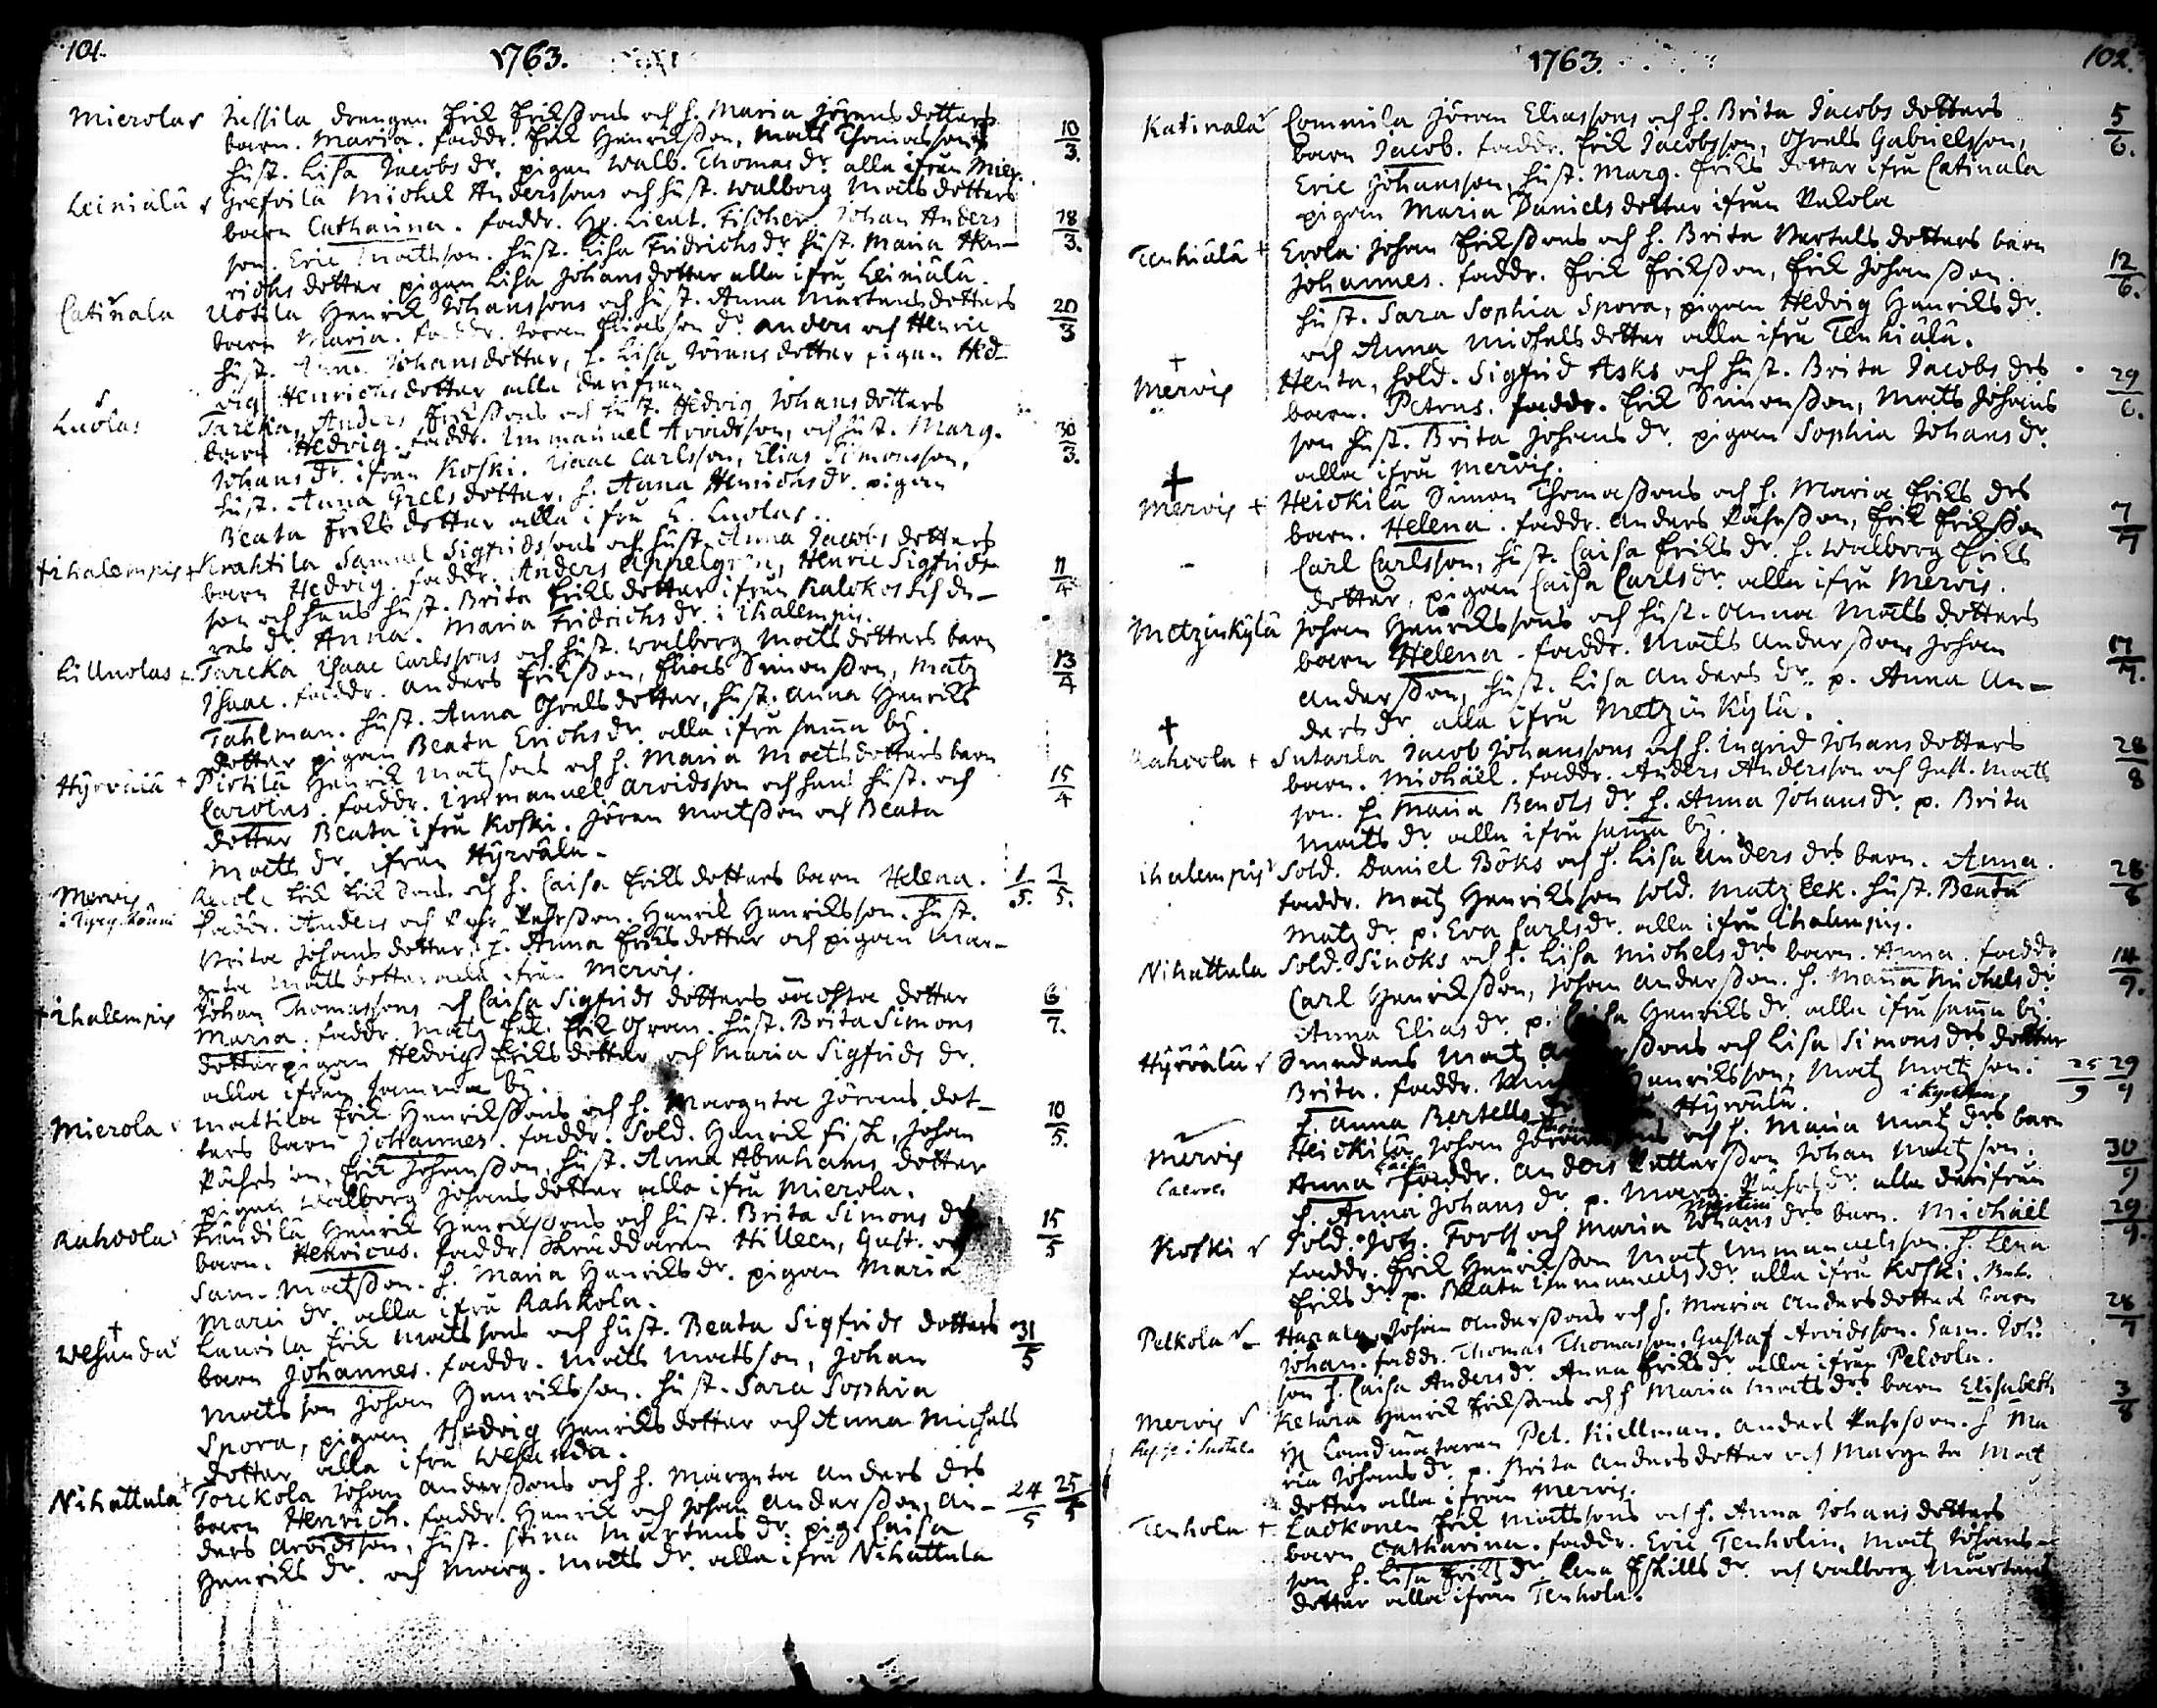 101.
1763.
Mierola Jussila drengen Erik Erikssons och h. Maria Jörens dotters
barn. Maria. faddr. Erik Henriksson, Mats Thomasson 10/3.
hust. Lisa Jacobs dr. pigan Walb. Thomas dr. alla ifrån Mier.
Leiniälä Grefvilä Michel Anderssons och hust. Walborg Mats dotters
barn Catharina. faddr. Hr. Lieut. Fischer. Johan Anders 18/3.
son. Eric Mattsson. hust. Lisa Fridrichs dr hust. Maria Hen-
richs dotter pigan Lisa Johans dotter alla ifrå Leiniälä.
Catinala Uotila Henrik Johanssons och hust. Anna Mårtens dotters
barn Maria. faddr. Jören Eliasson dr. Anders och Henric 20/3
hust. Anna Johansdotter, h. Lisa Jörens dotter pigan Hed-
vig Henrichsdotter alla därifrån
Luolas Tareka, Anders Erikssons och hust. Hedvig Johansdotters
barn Hedvig. faddr. Immanuel Arvidsson, och hust. Marg. 30/3.
Johans dr. ifrån Koski. Isaac Carlsson, Elias Simonsson,
hust. Anna Grels dotter, h. Anna Henrichs dr. pigan
Beata Eriks dotter alla ifrå L. Luolas.
+ Ihalempis + Krahtila Samuel Sigfridssons och hust. Anna Jacobs dotters
barn Hedvig. faddr. Anders Appelgrén, Henric Sigfrids- 11/4
son och hans hust. Brita Eriks dotter ifrån Kalokos
res dr. Anna. Maria Fridrichs dr. i Ihalempis.
Li Luolas Tareka Isaac Carlssons och hust. Walborg Mats dotters barn
Isaac. faddr. Anders Eriksson, Elias Simonsson, Matz 13/4
Tahlman. hust. Anna Grels dotter, hust. Anna Henriks
dotter pigan Beata Erichs dr. alla ifrå samma by.
Hyrvälä + Pirtilä Henrik Matzsons och h. Maria Mats dotters barn
Carolus. faddr. Immanuel Arvidsson och hans hust. och 15/4
dotter Beata ifrå Koski. Jören Matsson och Beata
Matts dr. ifrån Hyrvälä.
Mervis Erik Eriksons och h. Caisa Eriks dotters barn Helena. 1/5. 7/5.
faddr. Anders och Påhr Påhrsson. Henrik Henriksson. hust.
Brita Johans dotter, h. Anna Eriks dotter och pigan Mar-
greta Matts dotter alla ifrån Mervis.
+ Ihalempis Johan Thomassons och Caisa Sigfrids dotters oächta dotter 6/7.
Maria. faddr. Matz Eek. Erik Gran. hust. Brita Simons
dotter pigan Hedvig Eriks dotter och Maria Sigfrids dr.
alla ifrån samma by.
Mierola Mattila Erik Henrikssons och h. Margreta Jörens dot-
ters barn Johannes. faddr. Sold. Henrik Fisk, Johan 10/5.
Påhrsson, Erik Johansson, hust. Anna Abrahams dotter
pigan Walborg Johans dotter alla ifrå Mierola.
Rahvola Frändilä Henrik Henrikssons och hust. Brita Simons drs
barn. Henricus. faddr. Skräddaren Hilleen, Gust. och 15/5
Sam. Matsson. h. Maria Henriks dr. pigan Maria
Mari dr. alla ifrå Rahkola.
+ Wesunda Laurila Erik Matssons och hust. Beata Sigfrids dotters 31/5
barn Johannes. faddr. Mats Matsson, Johan
Mats son Johan Henriksson. hust. Sara Sophia
Spora, pigan Hedvig Henriks dotter och Anna Michels
dotter alla ifrå Wesunda.
Nihattula + Torckola Johan Anderssons och h. Margreta Anders drs
barn Henrich. faddr. Henrik och Johan Andersson, An- 24/5 25/5
ders Arvidsson, hust. Stina Mårtens dr. pig. Caisa
Henriks dr. och Marg. Matts dr. alla ifrå Nihattula
1763.
102.
Katinala Jöran Eliassons och h. Brita Jacobs dotters 5/6.
barn Jacob. faddr. Erik Jacobsson, Grels Gabrielsson,
Eric Johansson, hust. Marg. Eriks dotter ifrå Catinala
pigan Maria Daniels dotter ifrån Pekola
Tenhiälä + Erola Johan Erikssons och h. Brita Bertels dotters barn
Johannes. faddr. Erik Eriksson, Erik Johansson. 12/6.
hust. Sara Sophia Spora, pigan Hedvig Henriks dr.
och Anna Michels dotter alla ifrå Tenhiälä.
+ Mervis Henta, sold. Sigfrid Asks och hust. Brita Jacobs drs 29/6.
barn. Petrus. faddr. Erik Simonsson, Mats Johans
son hust. Brita Johans dr. pigan Sophia Johans dr.
alla ifrå Mervis.
+ Mervis + Heickilä Simon Thomassons och h. Maria Eriks drs
barn. Helena. faddr. Anders Påhrsson, Erik Eriksson 7/7
Carl Carlsson, hust. Caisa Eriks dr. h. Walborg Eriks
dotter, pigan Caisa Carls dr. alla ifrå Mervis.
Metzinkylä Johan Henrikssons och hust. Anna Mats dotters
barn Helena. faddr. Mats Andersson Johan 17/7.
Andersson, hust. Lisa Anders dr. p. Anna An-
ders dr. alla ifrå Metzinkylä.
+ Rahvola + Sutarla Jacob Johanssons och h. Ingrid Johans dotters
barn. Michäel. faddr. Anders Andersson och Gust. Mats 28/8
son. h. Maria Bengts dr. h. Anna Johans dr. p. Brita
Matts dr. alla ifrå samma by.
Ihalempis Sold. Daniel Böks och h. Lisa Anders drs barn. Anna.
faddr. Matz Henriksson sold. Matz Eek. hust. Beata 28/8
Matz dr. p. Eva Carls dr. alla ifrå Ihalempis.
Nihattula Sold. Sincks och h. Lisa Michels drs barn. Anna. faddr 14/9.
Carl Henriksson, Johan Andersson. h. Maria Michels dr
Anna Elias dr. p. Lisa Henriks dr. alla ifrå samma by.
Hyrvälä Sundens Matz och Lisa Simons drs dotter
Brita. faddr. Henriksson, Matz Matzson. 25/9 29/9
h. Anna Bertells Hyrvälä.
Mervis Heickilä Johan och h. Maria Matz drs barn
Anna Caisa faddr. Anders Pettersson Johan Matzson. 30/9
h. Anna Johans dr. p. Marg. dr. alla därifrån
Koski Sold. Joh. Forss och Maria Johans drs barn. Michäel 29/9.
faddr. Erik Henriksson Mats Immanuelsson. h. Lena
Eriks dr. p. Beata Immanuels dr alla ifrå Koski.
Pelkola Hapala Johan Anderssons och h. Maria Anders dotters barn 28/7
Johan. faddr. Thomas Thomasson. Gustaf Arvidsson. Sam. Joh:
son h. Caisa Anders dr. Anna Eriks dr. alla ifrån Pelcola.
Mervis Ketara Henrik Erikssons och h Maria Mats drs barn Elisabeth 3/8
Hr Landmätaren Pet. Kiellman. Anders Påhrsson. h Ma
ria Johans dr. p. Brita Anders dotter och Margreta Mat
dotter alla ifrån Mervis.
Tenhola + Lackonen Erik Matssons och h. Anna Johans dotters
barn Catharina. faddr. Eric Tenholin, Matz Johans-
son h. Lisa Eriks dr. Lena Eskills dr. och Walborg Mårtens
dotter alla ifrån Tenhola.